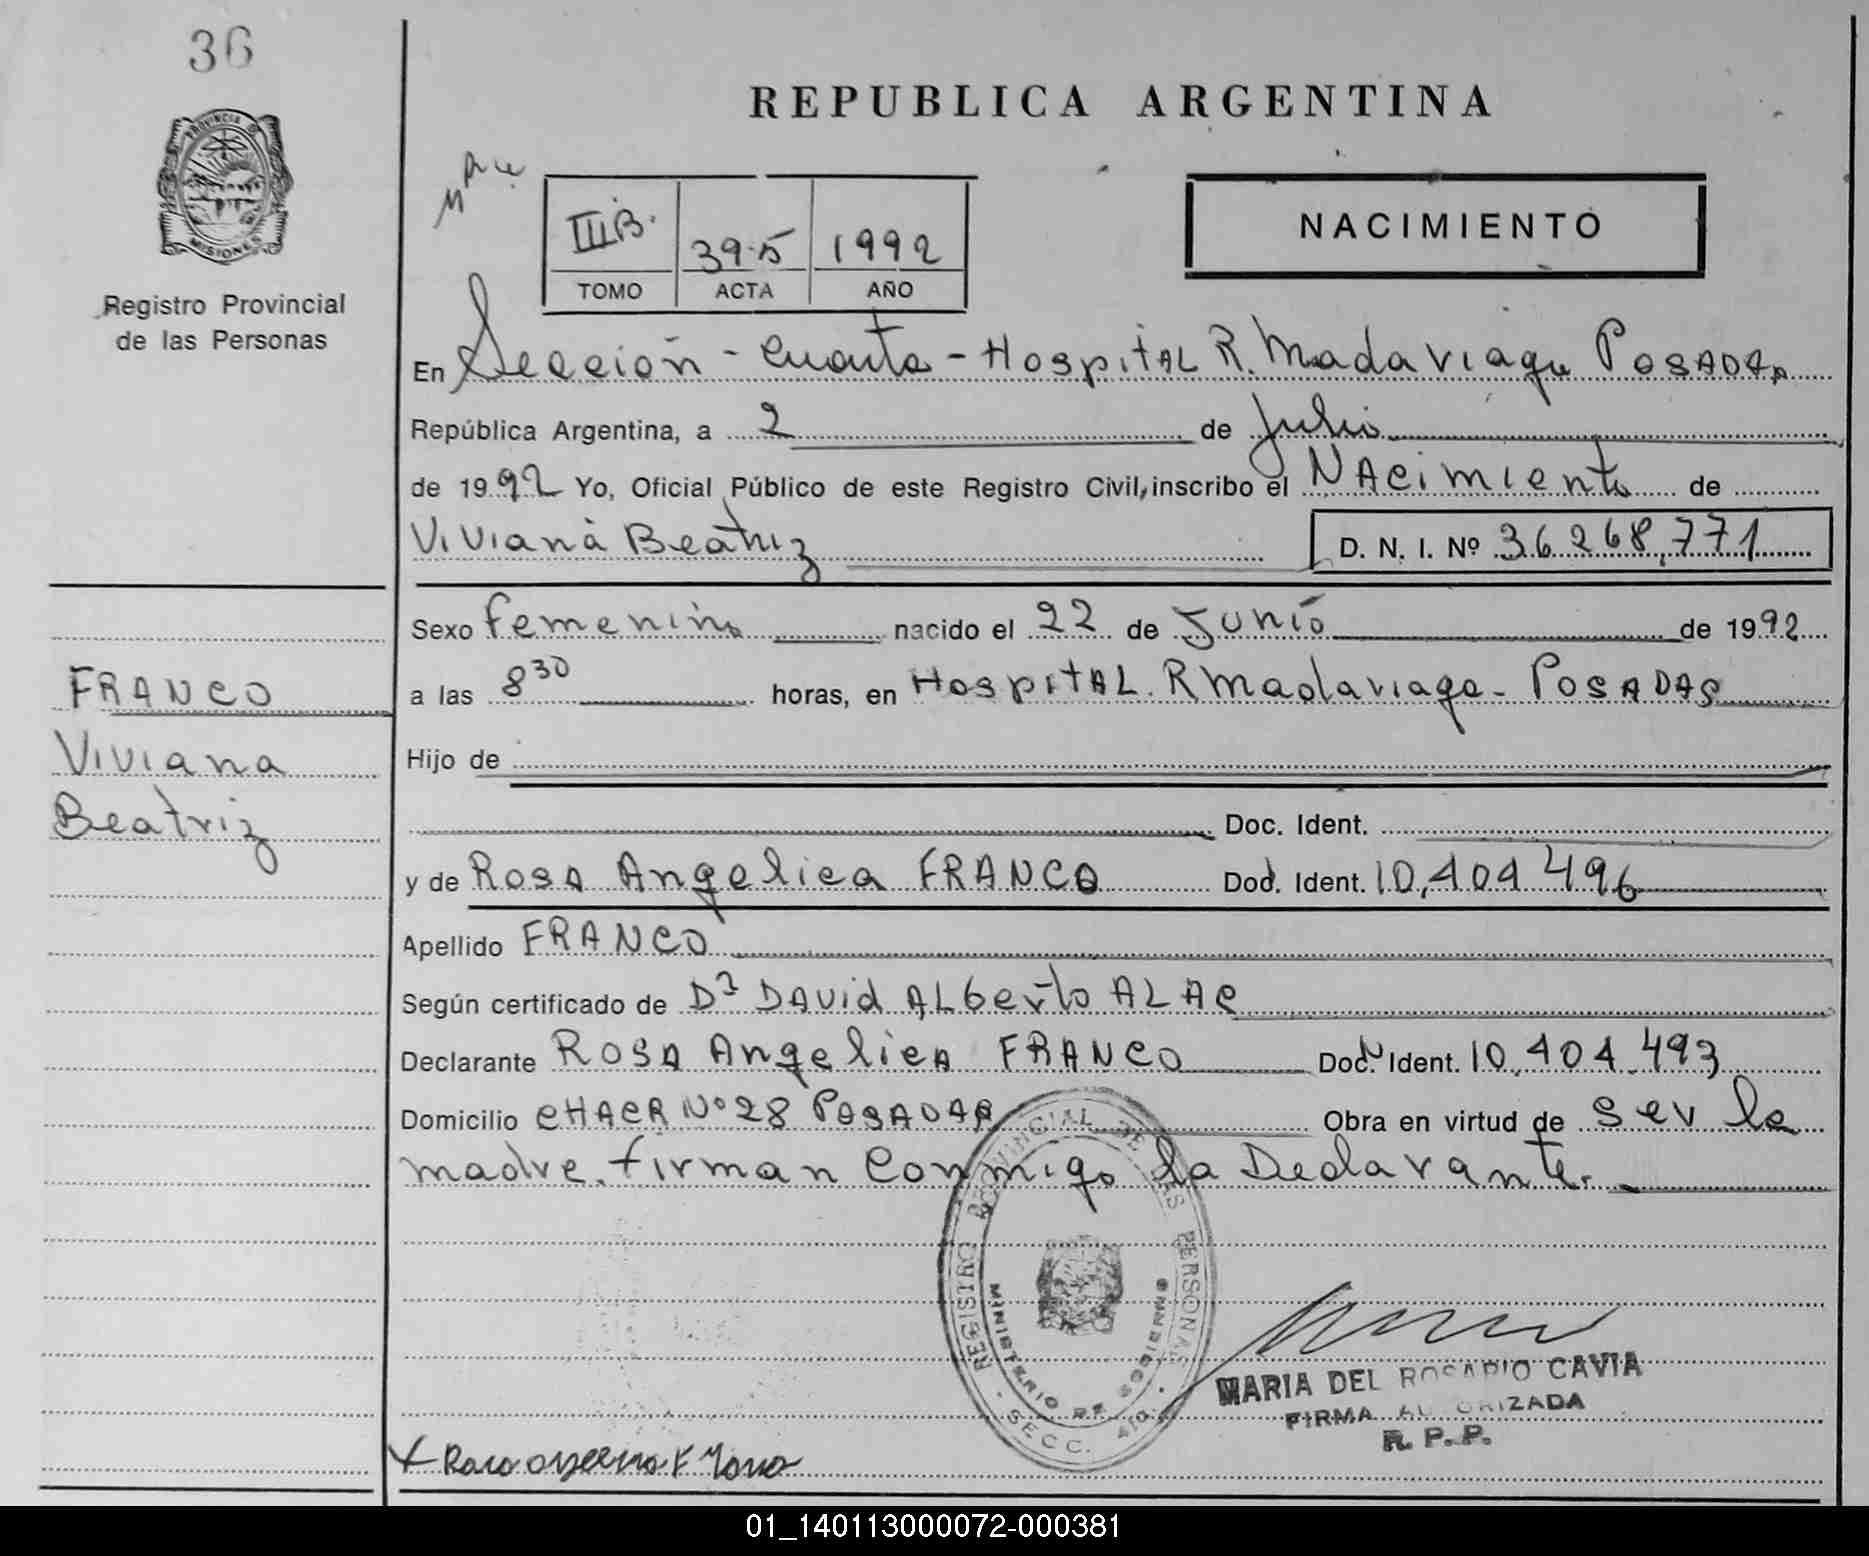 36
REPUBLICA ARGENTINA
PROVINCIA DE
MISIONES
Registro Provincial
de las Personas
IIIB. 395 1992
TOMO ACTA AÑO
NACIMIENTO
En Sección - Cuarta - Hospital R. Madariaga POSADAS
República Argentina, a 2 de Julio
de 1992 Yo, Oficial Público de este Registro Civil, inscribo el NAcimiento de
Viviana Beatriz D. N. I. Nº 36.268,771
Sexo femenino nacido el 22 de Junio de 1992
a las 8 30 horas, en HospitAL. R Madariaga - POSADAS
Hijo de
Doc. Ident.
y de Rosa Angelica FRANCO Doc. Ident. 10,404 496
Apellido FRANCO
Según certificado de Dr DAvid ALberto ALAC
Declarante ROSA Angelica FRANCO Doc. Ident. 10.404.493
Domicilio CHACR Nº 28 POSADAS Obra en virtud de ser la
madre. firman Conmigo la Declarante.
FRANCO
Viviana
Beatriz
REGISTRO PROVINCIAL DE LAS PERSONAS
MINISTERIO DE GOBIERNO
SECC. 4ta.
MARIA DEL ROSARIO CAVIA
FIRMA AUTORIZADA
R. P. P.
01_140113000072-000381